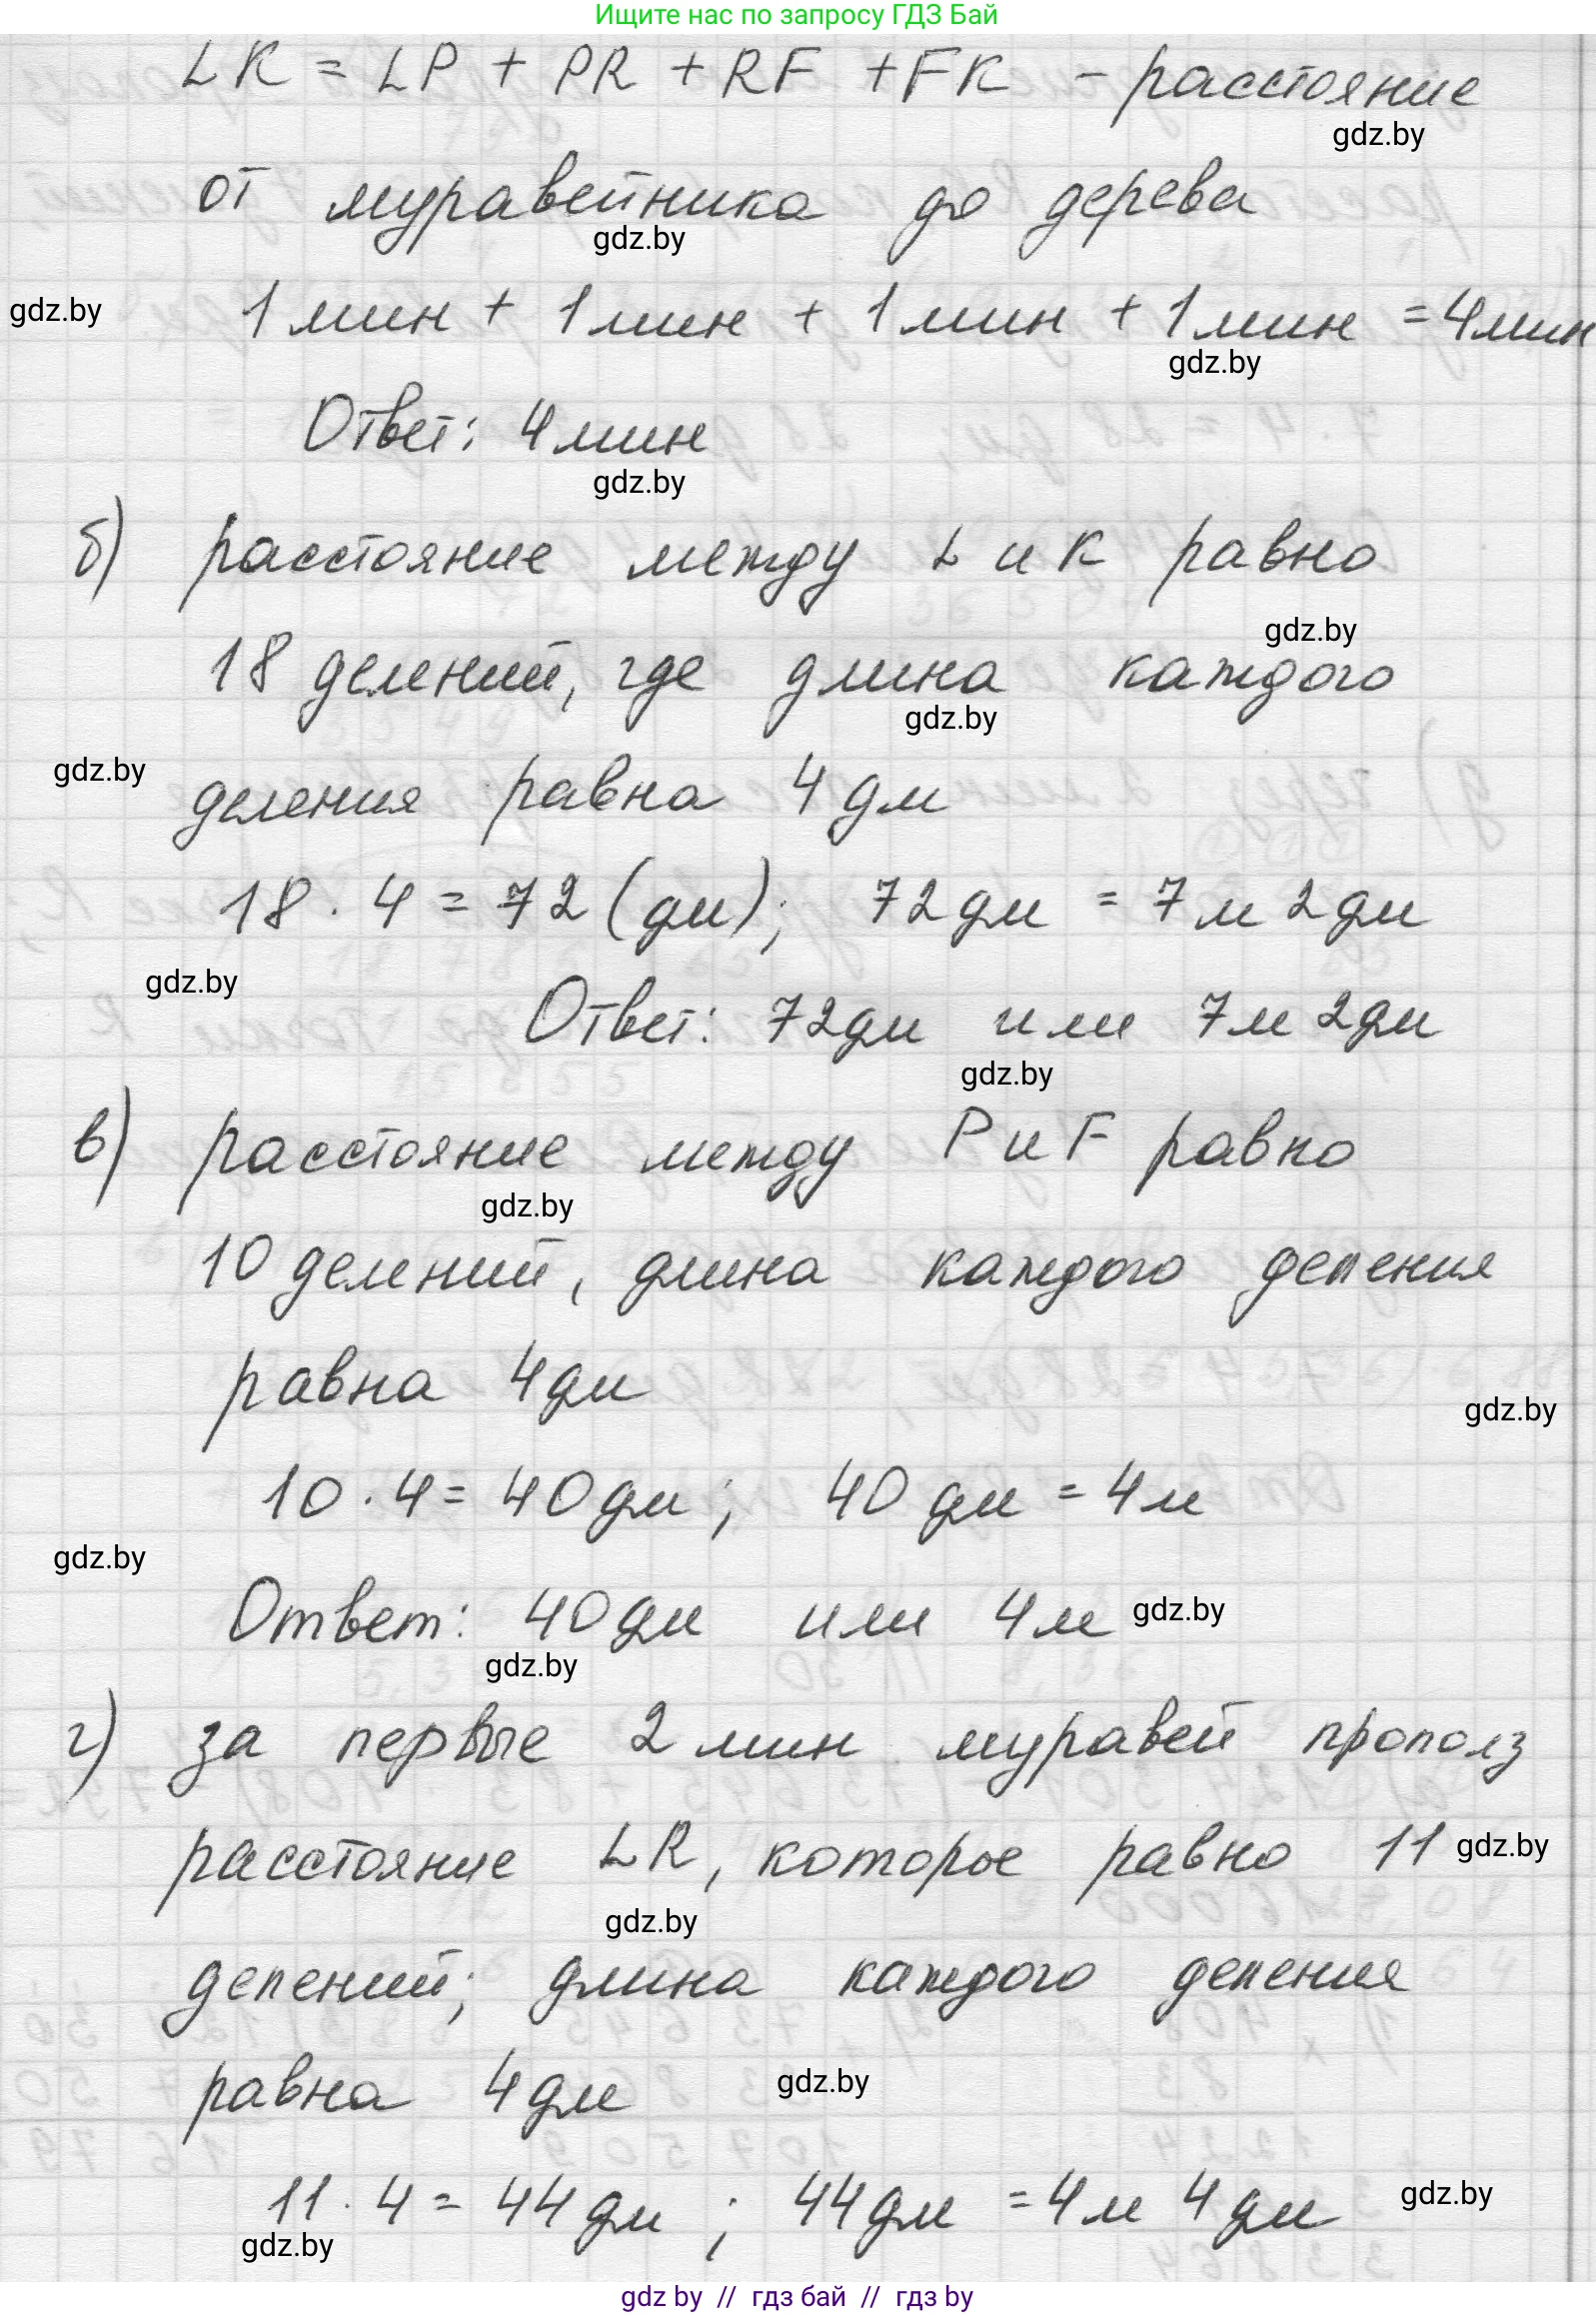 Ищите нас по запросу ГДЗ Бай
LK = LP + PR + RF + FK - расстояние
gdz.by
от муравейника до дерева
gdz.by
gdz.by
1 мин + 1 мин + 1 мин + 1 мин = 4 мин
gdz.by
Ответ: 4 мин
gdz.by
б) расстояние между L и K равно
gdz.by
18 делений, где длина каждого
gdz.by
gdz.by
деления равна 4 дм
18 · 4 = 72 (дм); 72 дм = 7 м 2 дм
gdz.by
Ответ: 72 дм или 7 м 2 дм
gdz.by
в) расстояние между P и F равно
gdz.by
10 делений, длина каждого деления
равна 4 дм
gdz.by
10 · 4 = 40 дм; 40 дм = 4 м
gdz.by
Ответ: 40 дм или 4 м gdz.by
gdz.by
г) за первые 2 мин муравей прополз
расстояние LR, которое равно 11 gdz.by
gdz.by
делений; длина каждого деления
равна 4 дм gdz.by
11 · 4 = 44 дм ; 44 дм = 4 м 4 дм gdz.by
gdz.by
gdz by // гдз бай // гдз by